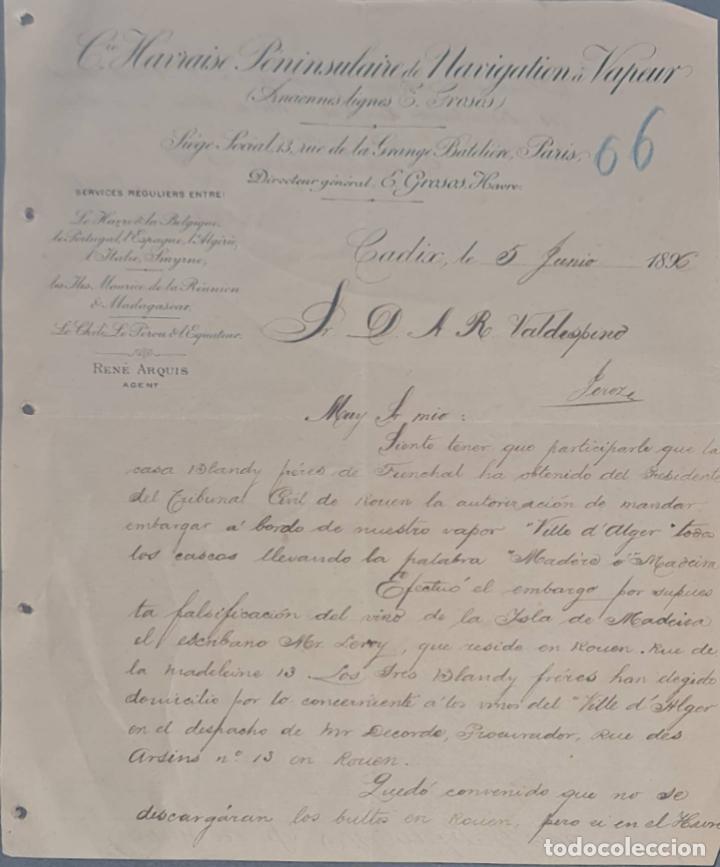 Cie Havraise Péninsulaire de Navigation à Vapeur
(Anciennes lignes E. Grosos)
Siège Social, 13, rue de la Grange Batelière, Paris,
66
Directeur général, E. Grosos, Havre.
SERVICES RÉGULIERS ENTRE:
Le Havre & la Belgique,
le Portugal, l'Espagne, l'Algérie,
l'Italie, Smyrne,
les Iles Maurice, de la Réunion
& Madagascar.
Le Chili, Le Pérou & l'Equateur.
RENÉ ARQUIS
AGENT
Cadix, le 5 Junio 1896
Sr D. A R. Valdespino
Jerez
Muy Sr mio:
Siento tener que participarle que la
casa Blandy fréres de Funchal ha obtenido del Presidente
del Tribunal Civil de Rouen la autorización de mandar
embargar á bordo de nuestro vapor "Ville d'Alger" toda
los cascas llevando la palabra "Madère o" Madeira
Efectuó el embargo por supues
ta falsificación del vino de la Isla de Madeira
el escribano Mr. Leroy, que reside en Rouen. Rue de
la Madeleine 13. Los Sres Blandy fréres han elegido
domicilio por lo concerniente á los vinos del "Ville d'Alger
en el despacho de Mr Decorde, Procurador, Rue des
Arsins nº 13 en Rouen.
Quedó convenido que no se
descargáran los bultos en Rouen, pero si en el Havre
todocoleccion